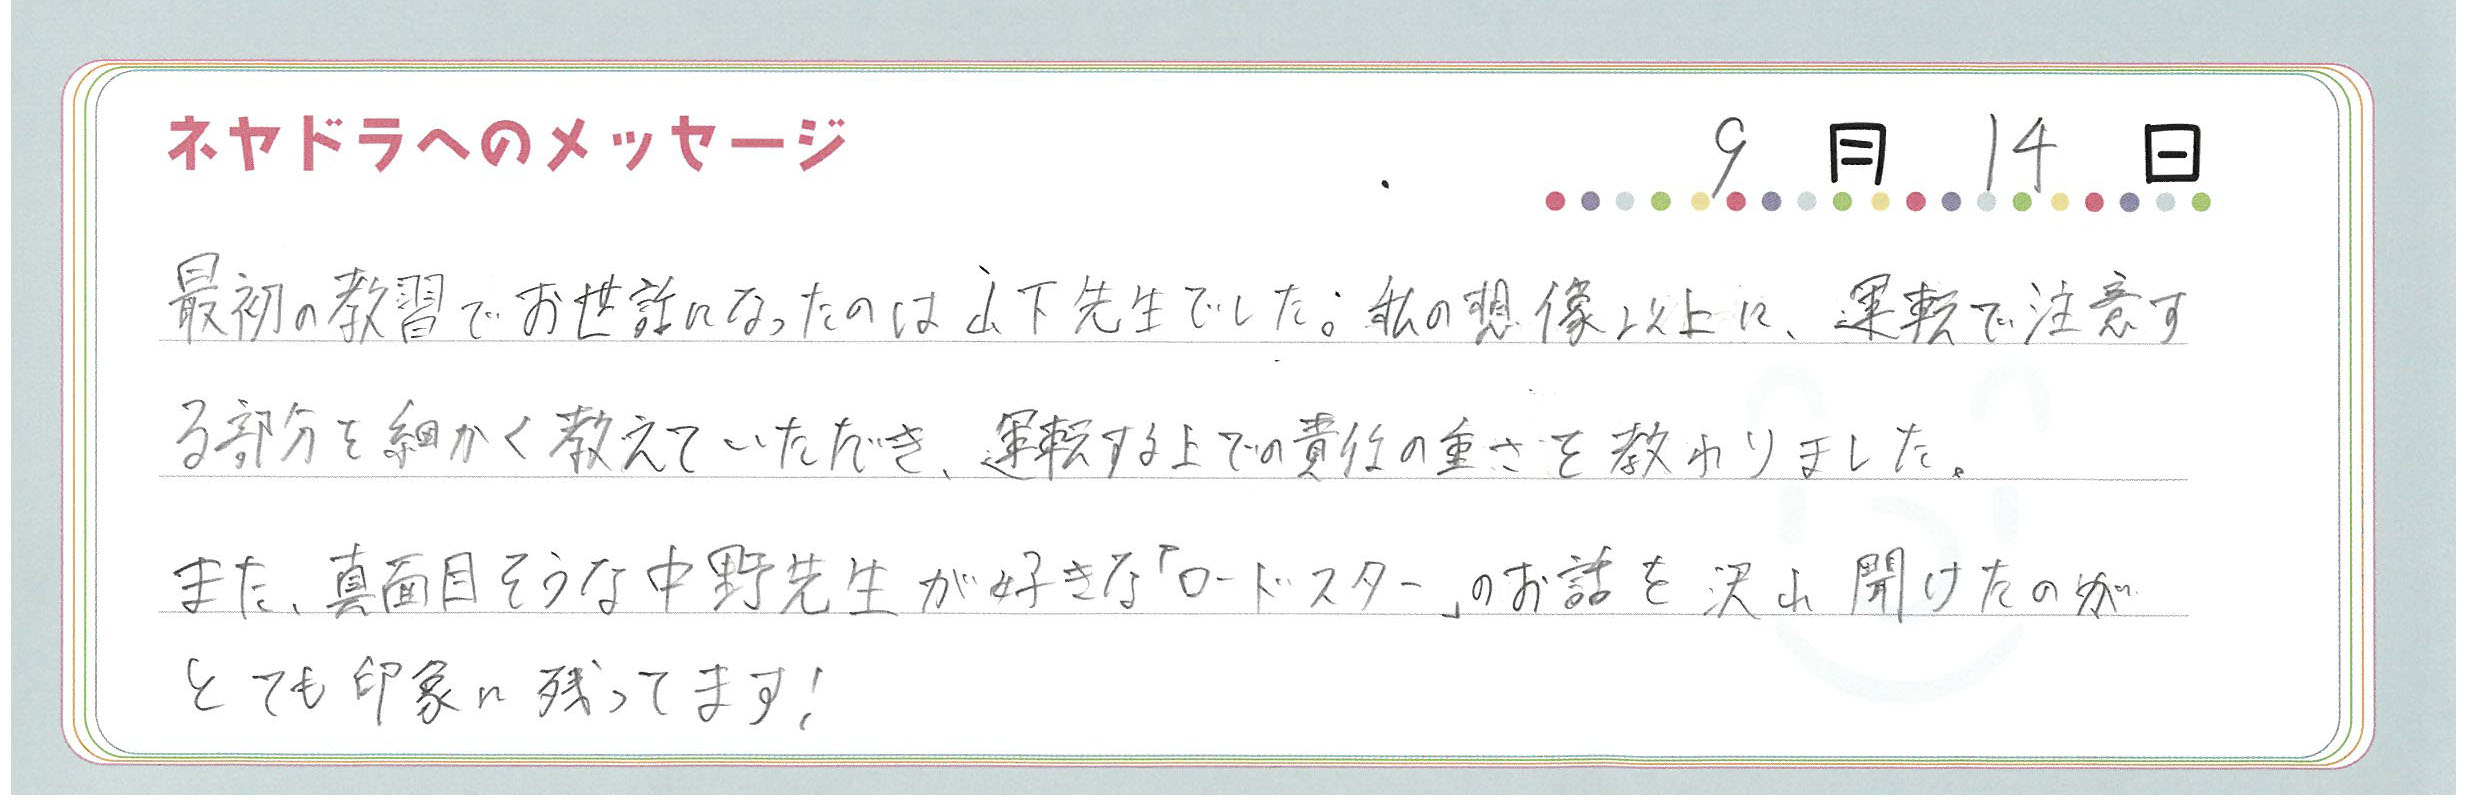 ネヤドラへのメッセージ
9月14日
最初の教習でお世話になったのは山下先生でした。私の想像以上に、運転で注意す
る部分を細かく教えていただき、運転する上での責任の重さを教わりました。
また、真面目そうな中野先生が好きな「ロードスター」のお話を沢山聞けたのが
とても印象に残ってます!